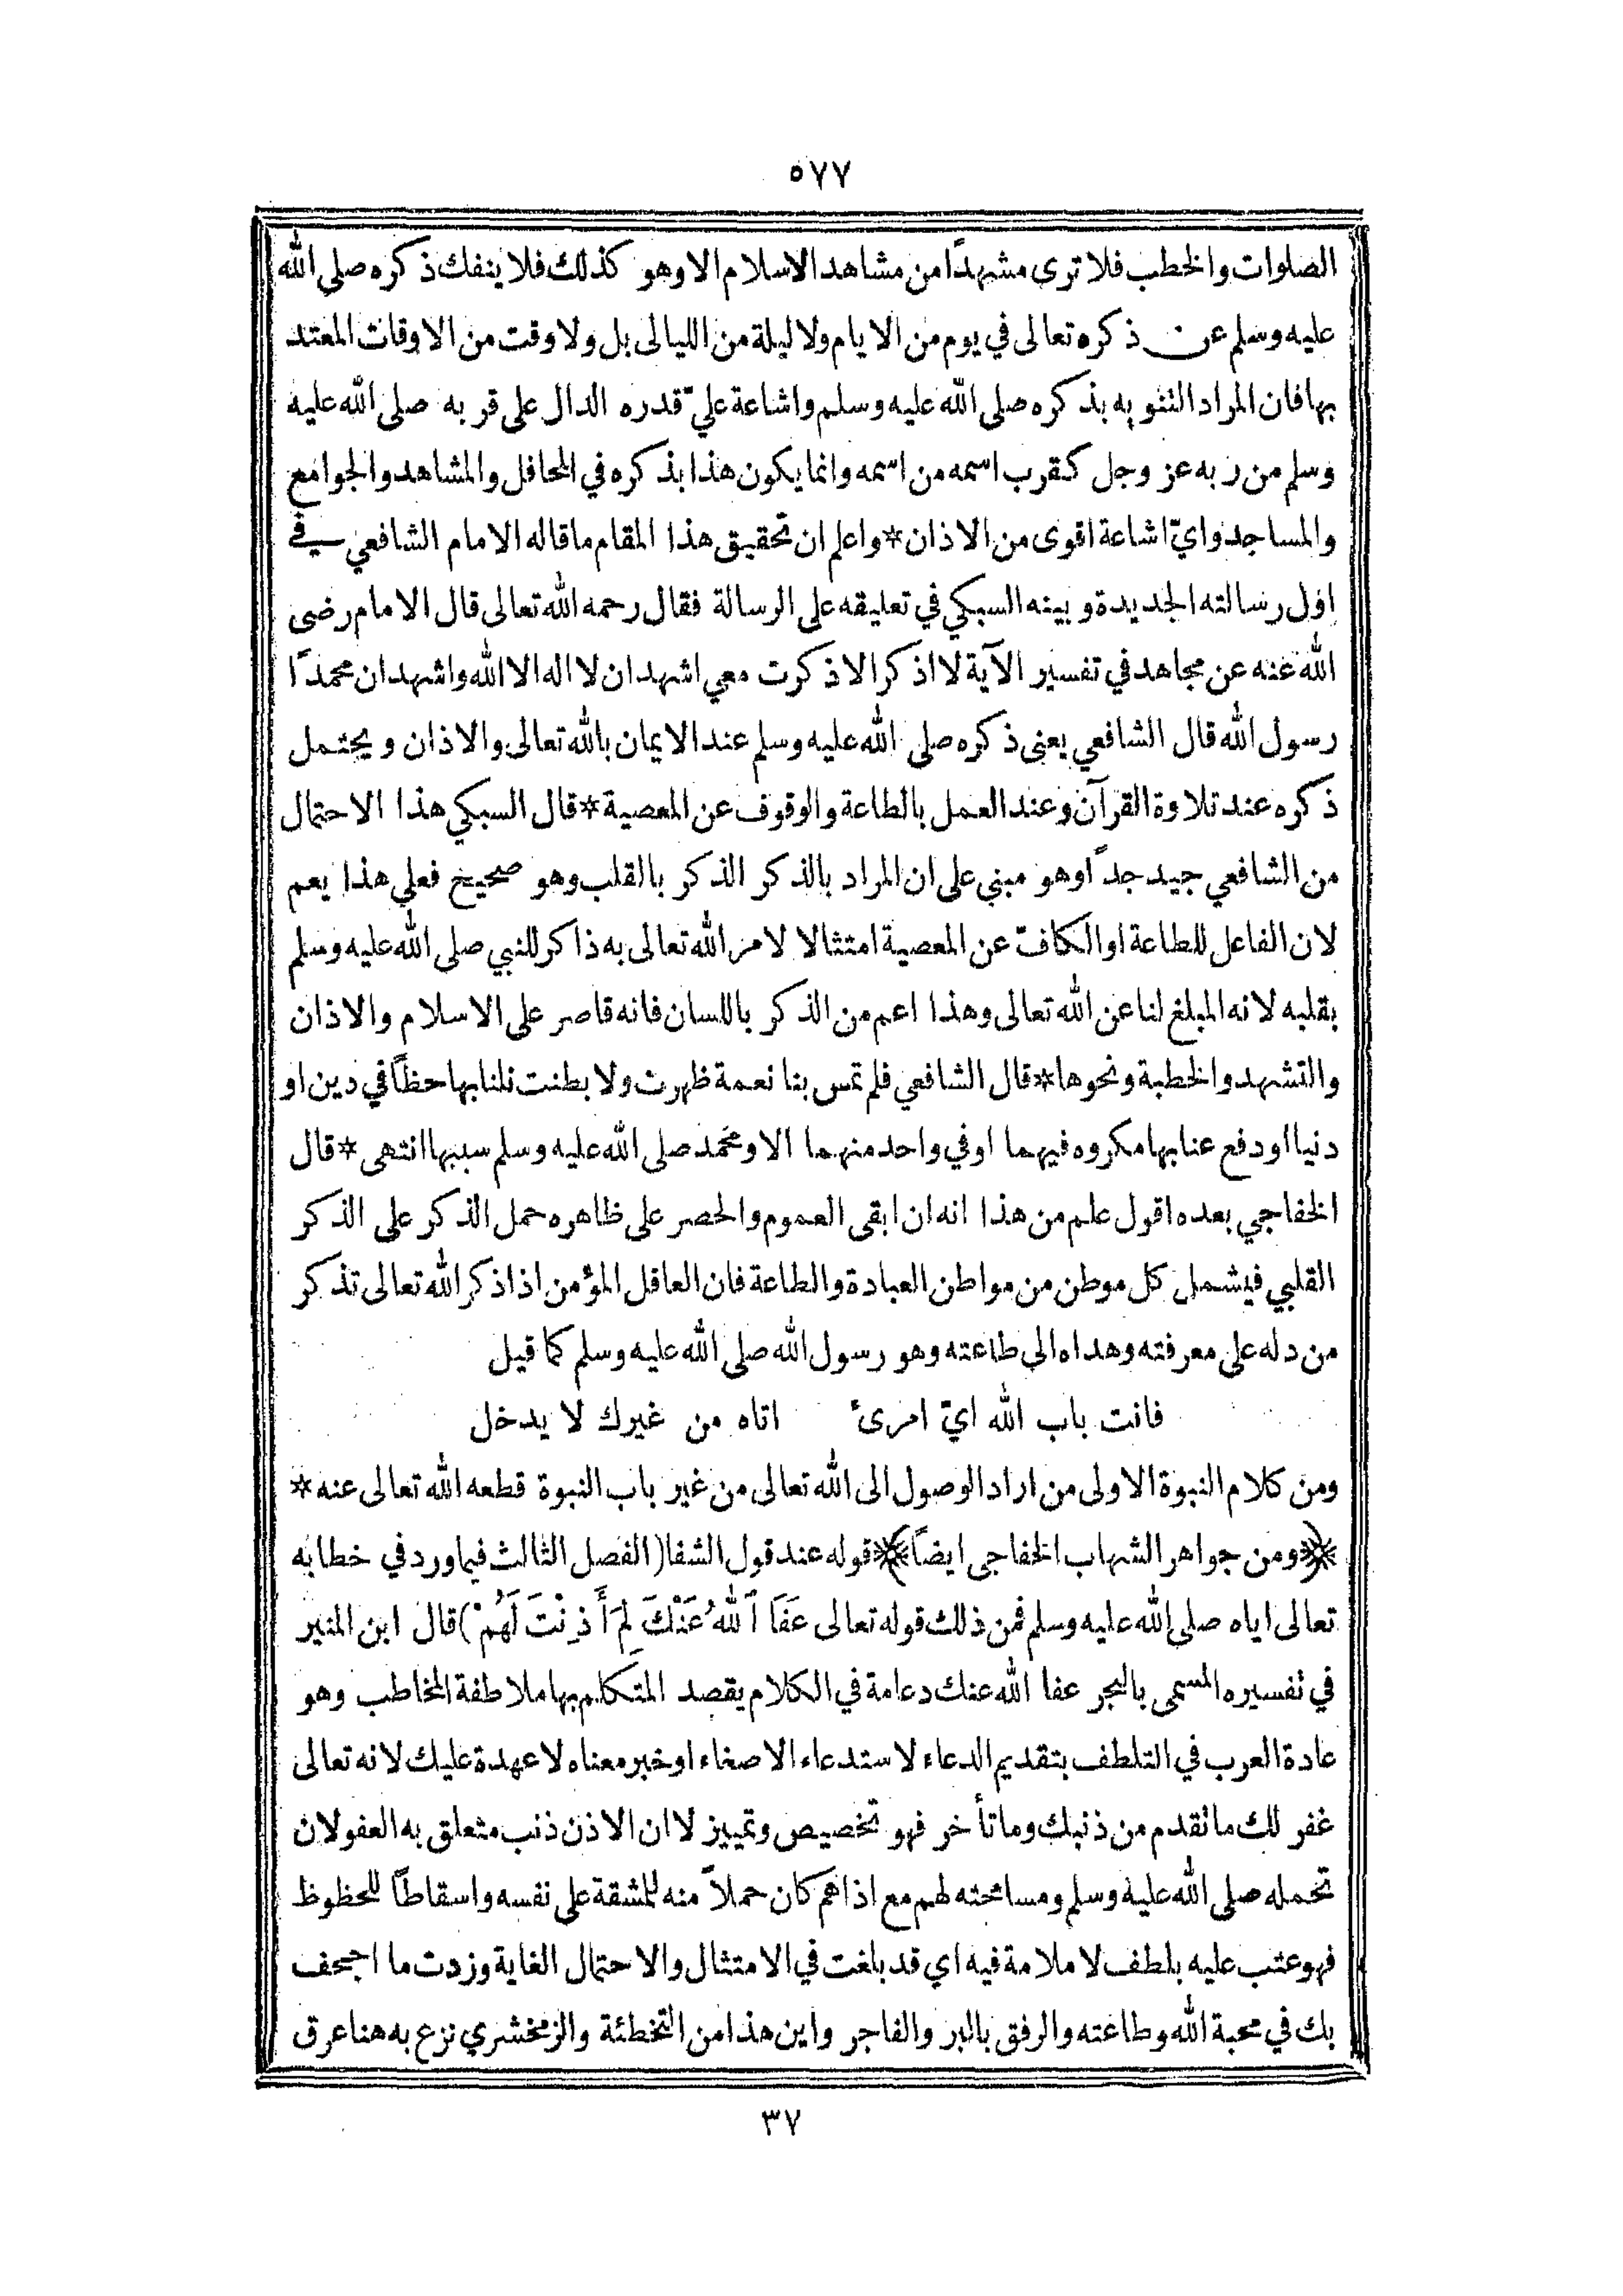 ٥٧٧
الصلوات والخطب فلا ترى مشهدًا من مشاهد الاسلام الا وهو كذلك فلا ينفك ذكره صلى الله
عليه وسلم عن ذكره تعالى في يوم من الايام ولا ليلة من الليالى بل ولا وقت من الاوقات المعتد
بها فان المراد التنويه بذكره صلى الله عليه وسلم واشاعة عليّ قدره الدال على قربه صلى الله عليه
وسلم من ربه عز وجل كقرب اسمه من اسمه وانما يكون هذا بذكره في المحافل والمشاهد والجوامع
والمساجد وايّ اشاعة اقوى من الاذان * واعلم ان تحقيق هذا المقام ما قاله الامام الشافعي في
اول رسالته الجديدة وبينه السبكي في تعليقه على الرسالة فقال رحمه الله تعالى قال الامام رضى
الله عنه عن مجاهد في تفسير الآية لا اذكر الا ذكرت معي اشهد ان لا اله الا الله واشهد ان محمدًا
رسول الله قال الشافعي يعنى ذكره صلى الله عليه وسلم عند الايمان بالله تعالى والاذان ويحتمل
ذكره عند تلاوة القرآن وعند العمل بالطاعة والوقوف عن المعصية * قال السبكي هذا الاحتمال
من الشافعي جيد جدًا وهو مبني على ان المراد بالذكر الذكر بالقلب وهو صحيح فعلى هذا يعم
لان الفاعل للطاعة او الكافّ عن المعصية امتثالا لامر الله تعالى به ذاكر للنبي صلى الله عليه وسلم
بقلبه لانه المبلغ لنا عن الله تعالى وهذا اعم من الذكر باللسان فانه قاصر على الاسلام والاذان
والتشهد والخطبة ونحوها * قال الشافعي فلم تمس بنا نعمة ظهرت ولا بطنت نلنا بها حظًا في دين او
دنيا او دفع عنا بها مكروه فيهما او في واحد منهما الا ومحمد صلى الله عليه وسلم سببها انتهى * قال
الخفاجي بعده اقول علم من هذا انه ان ابقى العموم والحصر على ظاهره حمل الذكر على الذكر
القلبي فيشمل كل موطن من مواطن العبادة والطاعة فان العاقل المؤمن اذا ذكر الله تعالى تذكر
من دله على معرفته وهداه الى طاعته وهو رسول الله صلى الله عليه وسلم كما قيل
فانت باب الله ايّ امرئ اتاه من غيرك لا يدخل
ومن كلام النبوة الاولى من اراد الوصول الى الله تعالى من غير باب النبوة قطعه الله تعالى عنه *
﴿ومن جواهر الشهاب الخفاجي ايضاً﴾ قوله عند قول الشفا (الفصل الثالث فيما ورد في خطابه
تعالى اياه صلى الله عليه وسلم فمن ذلك قوله تعالى عَفَا ٱللهُ عَنْكَ لِمَ أَذِنْتَ لَهُمْ) قال ابن المنير
في تفسيره المسمى بالبحر عفا الله عنك دعامة في الكلام يقصد المتكلم بها ملاطفة المخاطب وهو
عادة العرب في التلطف بتقديم الدعاء لاستدعاء الاصغاء او خبر معناه لا عهدة عليك لانه تعالى
غفر لك ما تقدم من ذنبك وما تأخر فهو تخصيص وتمييز لا ان الاذن ذنب متعلق به العفو لان
تحمله صلى الله عليه وسلم ومسامحته لهم مع اذاهم كان حملاً منه للمشقة على نفسه واسقاطًا للحظوظ
فهو عتب عليه بلطف لا ملامة فيه اي قد بلغت في الامتثال والاحتمال الغاية وزدت ما اجحف
بك في محبة الله وطاعته والرفق بالبر والفاجر واين هذا من التخطئة والزمخشري نزع به هنا عرق
٣٧